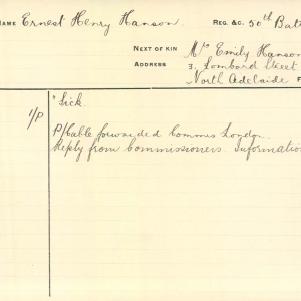 NAME Ernest Henry Hanson. REG. &C. 50th Batt
NEXT OF KIN Mrs Emily Hanson
ADDRESS 3, Lombard Street
North Adelaide F
"Sick.
1/P
P/Cable forwarded Commrs London.
Reply from Commissioners. Information